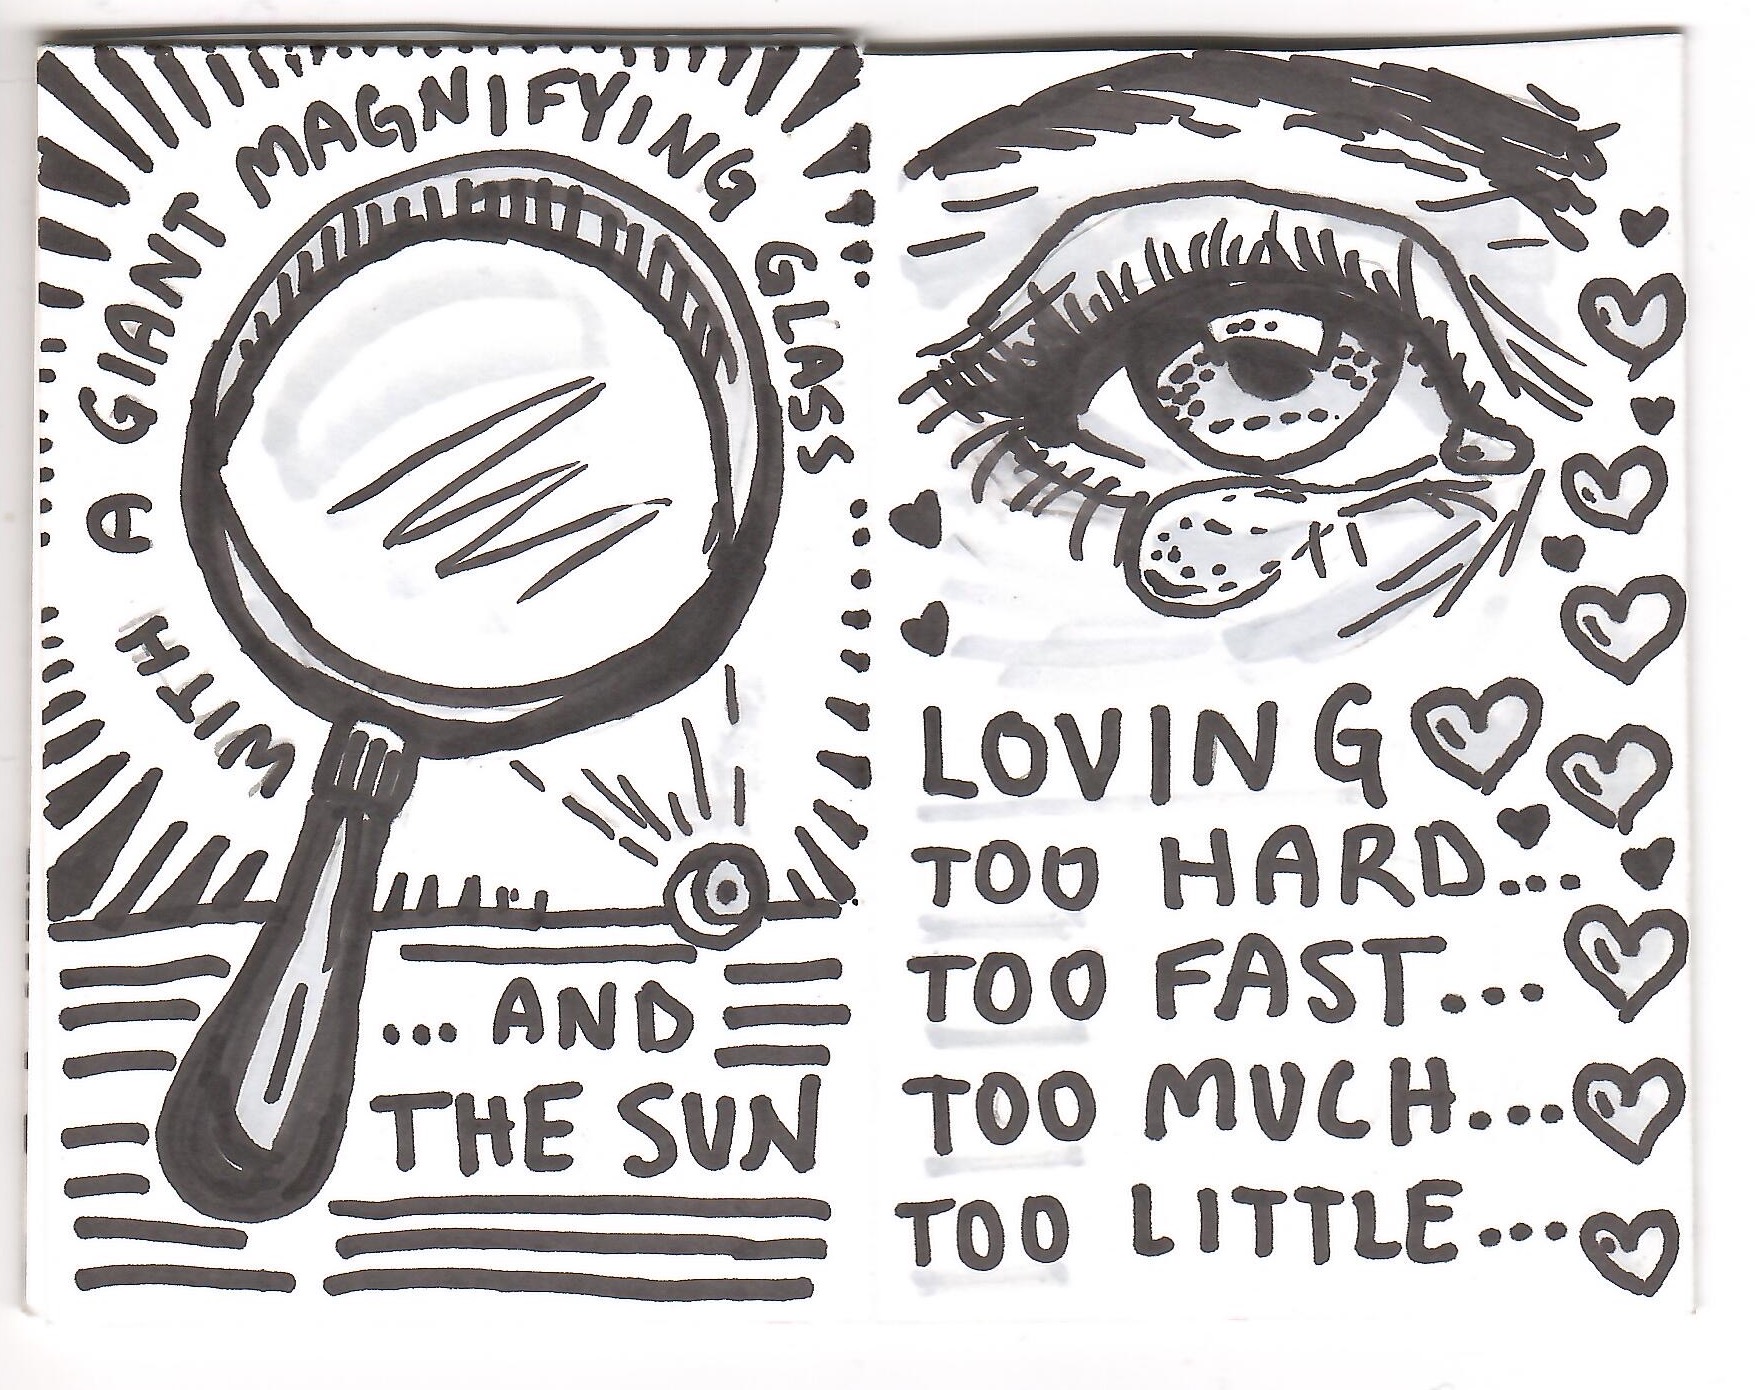 WITH A GIANT MAGNIFYING GLASS
... AND
THE SUN
LOVING
TOO HARD...
TOO FAST...
TOO MUCH...
TOO LITTLE...